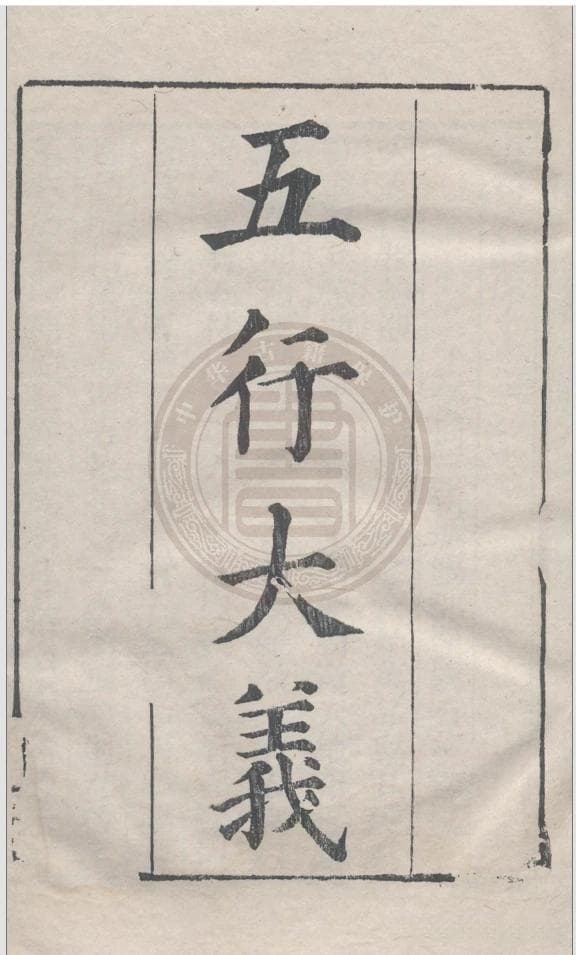 五行大義